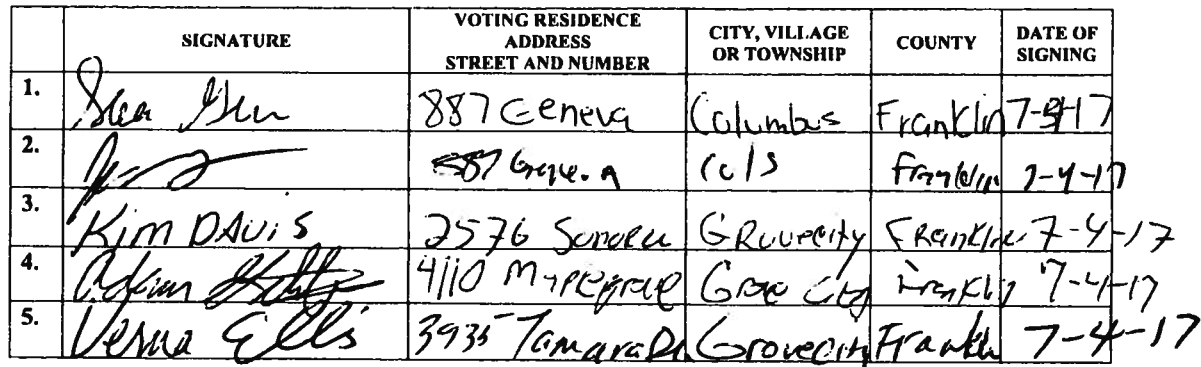 SIGNATURE VOTING RESIDENCE ADDRESS STREET AND NUMBER CITY, VILLAGE OR TOWNSHIP COUNTY DATE OF SIGNING
1. 887 Geneva Columbus Franklin 7-4-17
2. 887 Cols Franklin 7-4-17
3. Kim DAvis 2576 GRovecity FRanklin 7-4-17
4. Adam 4110 Maplegrove Grove City Franklin 7-4-17
5. Verna Ellis 3935 Tamara Dr Grovecity Franklin 7-4-17